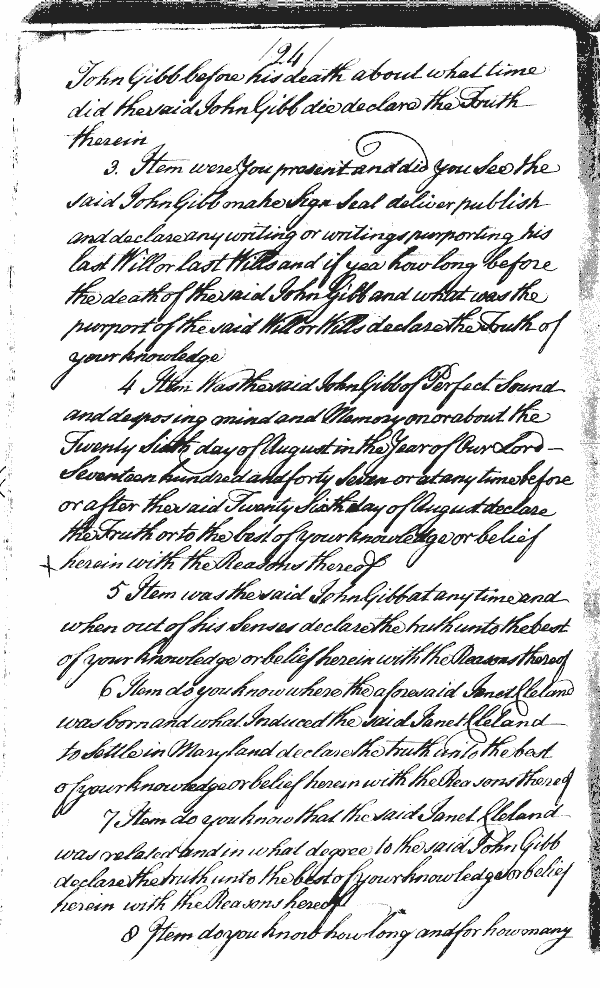 /24/
John Gibb before his death about what time
did the said John Gibb die declare the Truth
therein
3. Item were You present and did you See the
said John Gibb make Sign Seal deliver publish
and declare any writing or writings purporting his
last Will or last Wills and if yea how long before
the death of the said John Gibb and what was the
purport of the said Will or Wills declare the Truth of
your knowledge
4 Item Was the said John Gibb of Perfect Sound
and desposing mind and Memory on or about the
Twenty Sixth day of August in the Year of Our Lord —
Seventeen hundred and forty Seven or at any time before
or after the said Twenty Sixth day of August declare
the Truth or to the best of your knowledge or belief
+ herein with the Reasons thereof
5 Item was the said John Gibb at any time and
when out of his Senses declare the truth unto the best
of your knowledge or belief herein with the Reasons thereof
6 Item do you know where the aforesaid Janet Cleland
was born and what Induced the said Janet Cleland
to settle in Maryland declare the truth unto the best
of your knowledge or belief herein with the Reasons thereof
7 Item do you know that the said Janet Cleland
was related and in what degree to the said John Gibb
declare the truth unto the best of your knowledge or belief
herein with the Reasons hereof
8 Item do you know how long and for how many